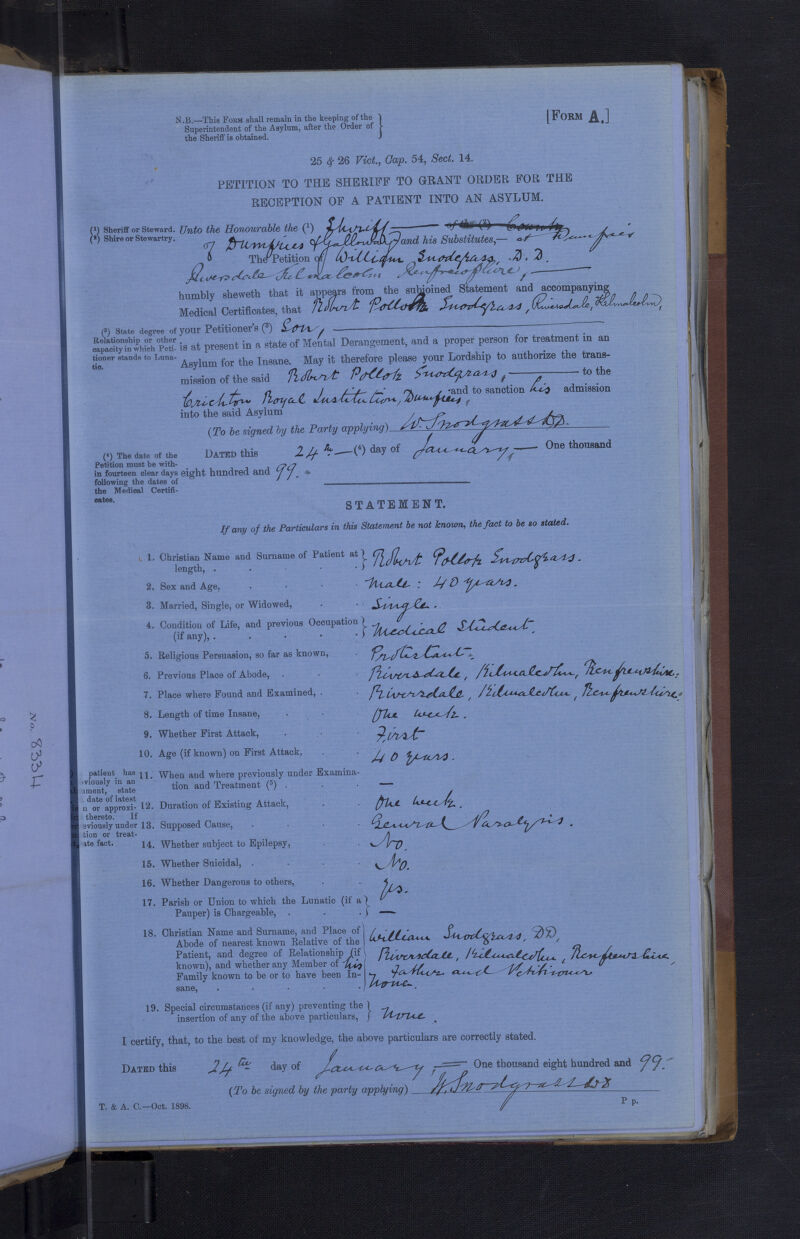 N.B.—This Form shall remain in the keeping of the
Superintendent of the Asylum, after the Order of
the Sheriff is obtained.
[Form A.]
25 & 26 Vict., Cap. 54, Sect. 14.
PETITION TO THE SHERIFF TO GRANT ORDER FOR THE
RECEPTION OF A PATIENT INTO AN ASYLUM.
(¹) Sheriff or Steward.
(²) Shire or Stewartry.
Unto the Honourable the (¹) Sheriff of the (²) County
of Dumfries & Galloway and his Substitutes,— at Dumfries
The Petition of William Snodgrass, D.D.
Riversdale Kilmalcolm Renfrewshire,
humbly sheweth that it appears from the subjoined Statement and accompanying
Medical Certificates, that Robert Pollok Snodgrass, Riversdale, Kilmalcolm,
(³) State degree of Relationship or other capacity in which Petitioner stands to Lunatic.
your Petitioner's (³) Son,
is at present in a state of Mental Derangement, and a proper person for treatment in an
Asylum for the Insane. May it therefore please your Lordship to authorize the trans-
mission of the said Robert Pollok Snodgrass, to the
Crichton Royal Institution, Dumfries, and to sanction his admission
into the said Asylum
(To be signed by the Party applying) W. Snodgrass DD.
(⁴) The date of the
Petition must be with-
in fourteen clear days
following the dates of
the Medical Certifi-
cates.
Dated this 24th (⁴) day of January, One thousand
eight hundred and 99.
STATEMENT.
If any of the Particulars in this Statement be not known, the fact to be so stated.
1. Christian Name and Surname of Patient at length, . Robert Pollok Snodgrass.
2. Sex and Age, Male : 40 years.
3. Married, Single, or Widowed, Single.
4. Condition of Life, and previous Occupation (if any), . Medical Student.
5. Religious Persuasion, so far as known, Protestant.
6. Previous Place of Abode, . Riversdale, Kilmalcolm, Renfrewshire.
7. Place where Found and Examined, . Riversdale, Kilmalcolm, Renfrewshire.
8. Length of time Insane, One week.
9. Whether First Attack, First
10. Age (if known) on First Attack, 40 years.
patient has
viously in an
ament, state
date of latest
n or approxi-
thereto. If
eviously under
tion or treat-
ate fact.
11. When and where previously under Examina-
tion and Treatment (⁵) . —
12. Duration of Existing Attack, One week.
13. Supposed Cause, General Paralysis.
14. Whether subject to Epilepsy, No.
15. Whether Suicidal, . No.
16. Whether Dangerous to others, Yes.
17. Parish or Union to which the Lunatic (if a
Pauper) is Chargeable, . —
18. Christian Name and Surname, and Place of
Abode of nearest known Relative of the
Patient, and degree of Relationship (if
known), and whether any Member of his
Family known to be or to have been In-
sane, .
William Snodgrass, DD,
Riversdale, Kilmalcolm, Renfrewshire,
Father and Petitioner
None.
19. Special circumstances (if any) preventing the
insertion of any of the above particulars, None.
I certify, that, to the best of my knowledge, the above particulars are correctly stated.
Dated this 24th day of January, One thousand eight hundred and 99.
(To be signed by the party applying) W. Snodgrass DD
T. & A. C.—Oct. 1898.
P p.
No. 8334